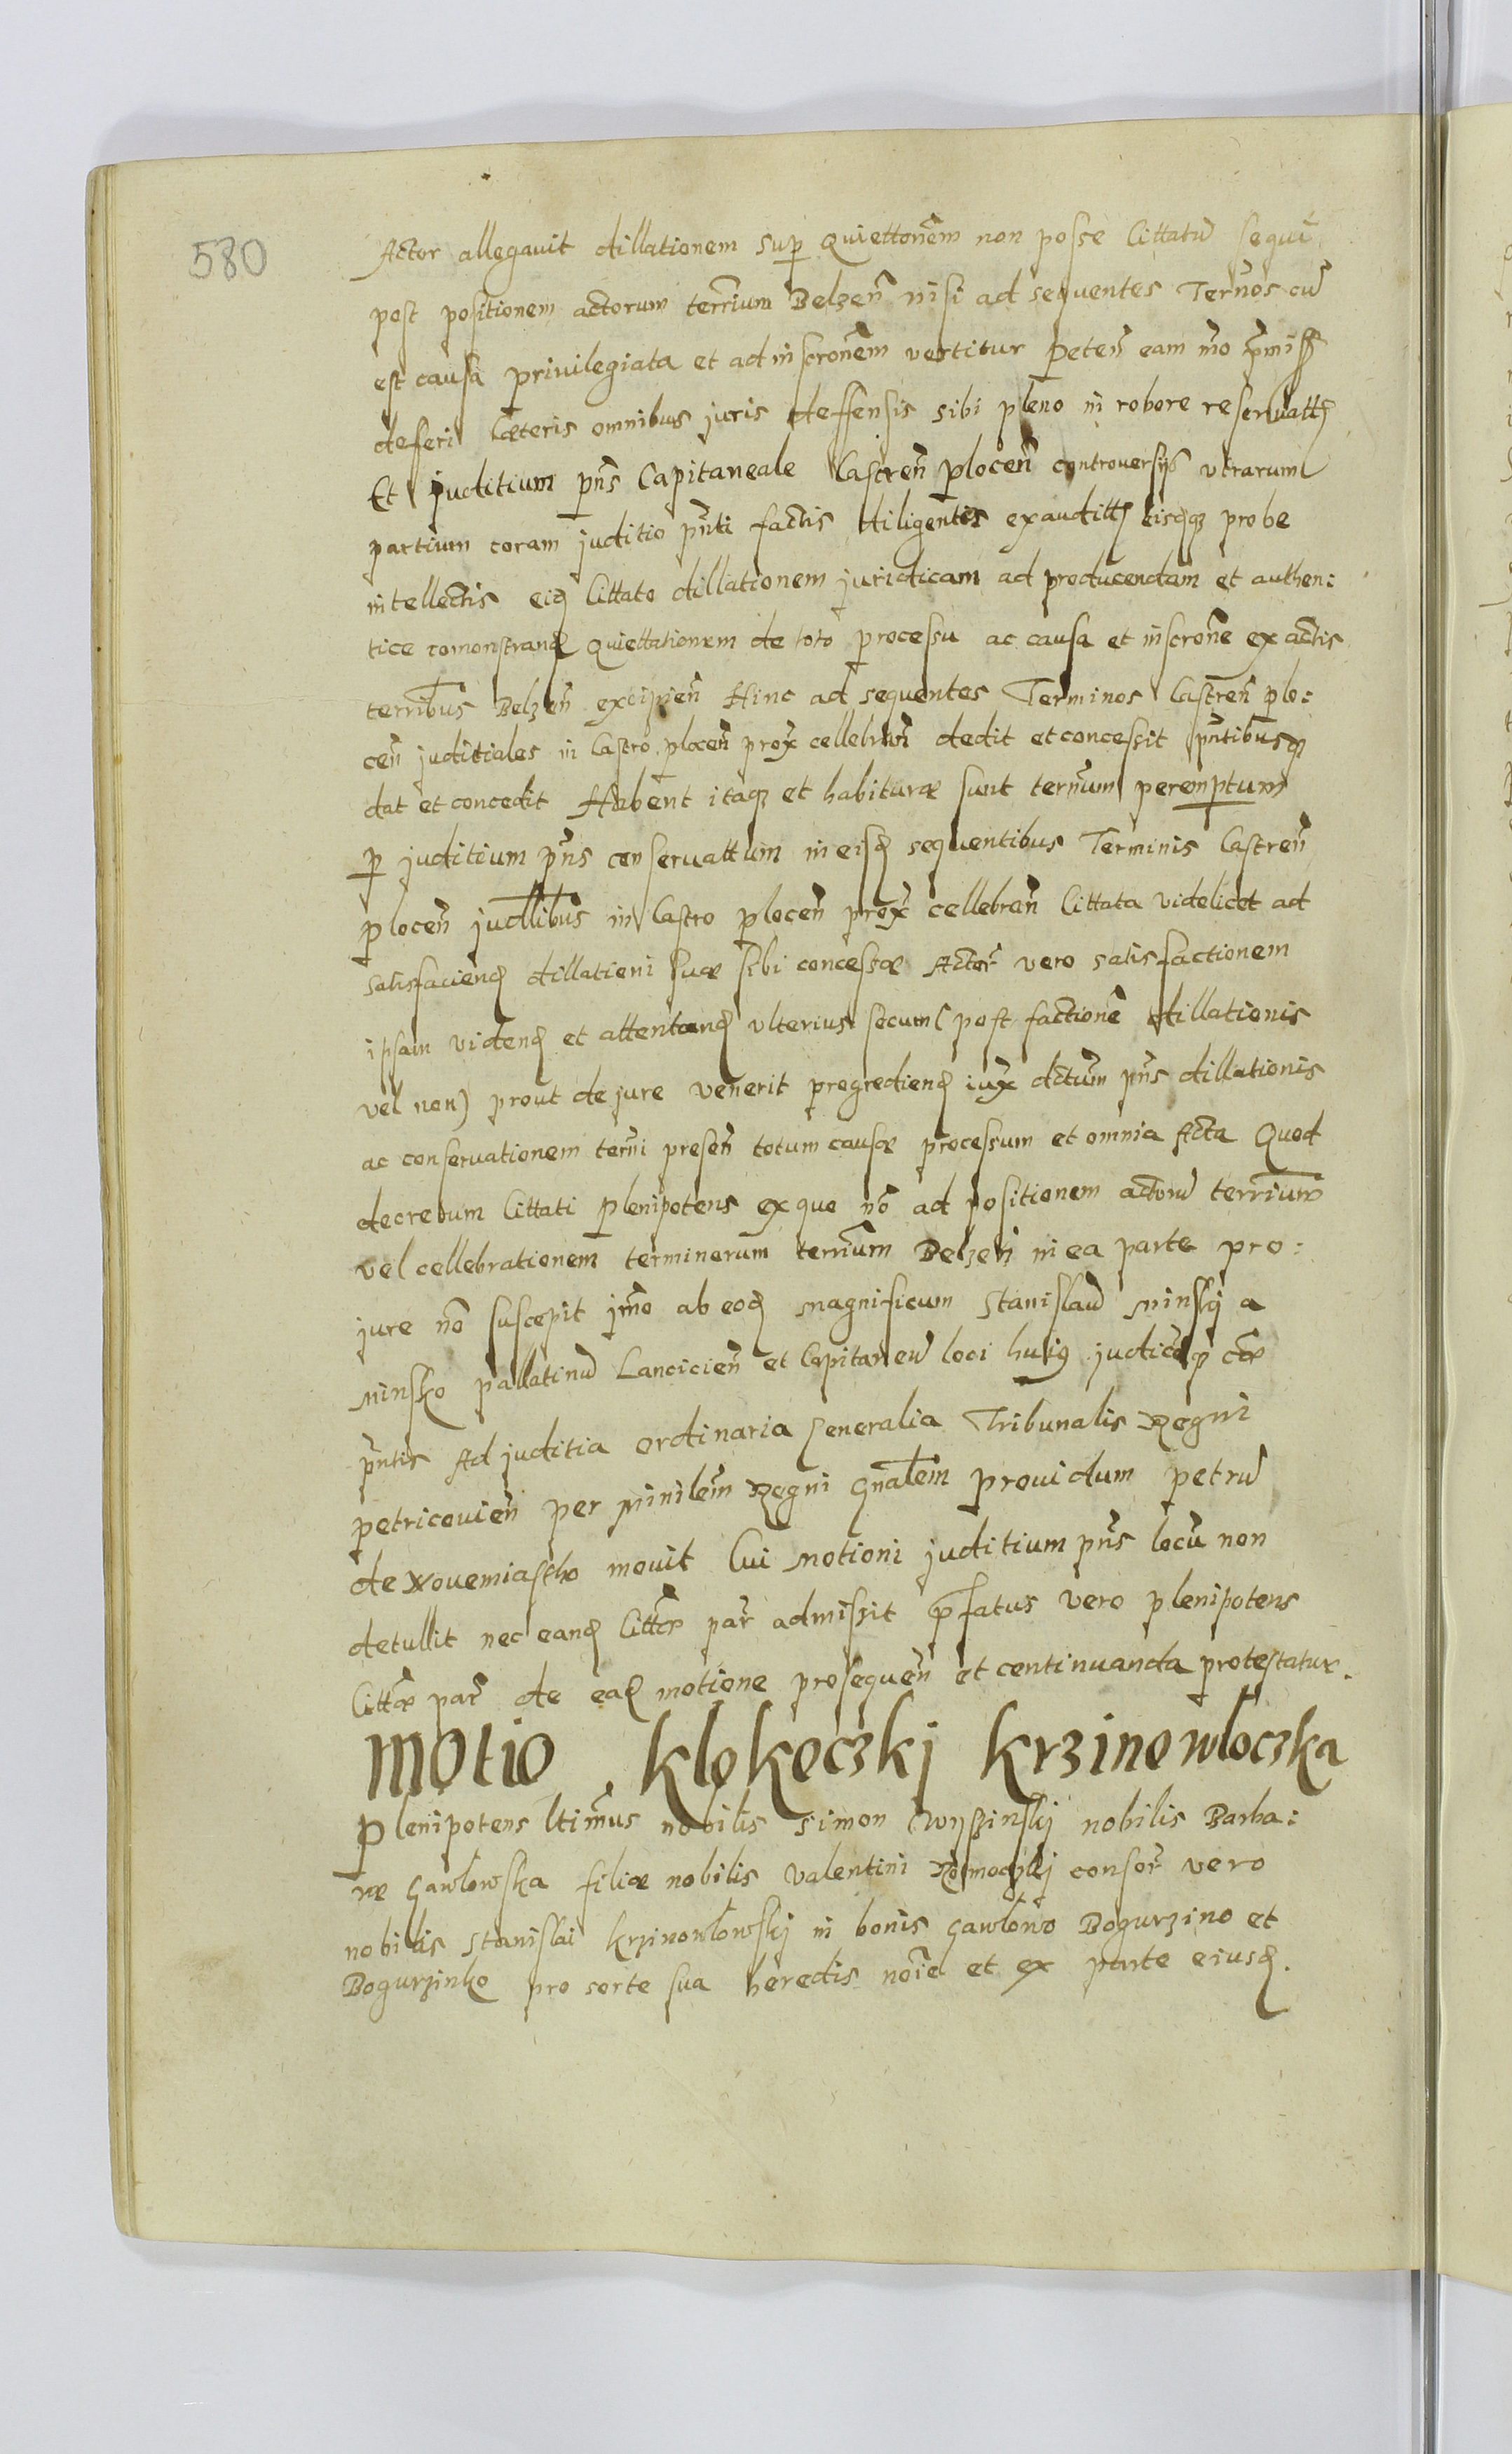 580
Actor allegavit dillationem sup Quiettonem non posse Cittatu sequi
post positionem actorum terrium Belzen nisi ad sequentes Ternos cu
est causa privilegiata et ad inscronem vertitur peten eam mo pmiss
deferi Cæteris omnibus juris deffensis sibi pleno in robore reservatt
Et juditium pns Capitaneale Castren plocen controversÿs utrarum
partium coram juditio pnti factis diligentis exauditt eisqz probe
intellectis eid Cittato dillationem juridicam ad producendam et authen:
tice comonstrand Quiettationem de toto processu ac causa et inscrone ex actis
terribus Belzen excipien Hinc ad sequentes Terminos Castren plo:
cen juditiales in Castro plocen prox cellebran dedit et concessit pntibusq
dat et concedit Habent itaqz et habituræ sunt ternum peremptum
p juditium pns conservattum in eisd sequentibus Terminis Castren
plocen judllibus in Castro plocen prox cellebren Cittata videlicet ad
satisfaciend dillationi suæ sibi concessæ Actor vero satisfactionem
ipsam vidend et attentand ulterius secum (post factione dillationis
vel non) prout de jure venerit progrediend iux dctum pns dillationis
ac conservationem terni presen totum causæ processum et omnia Acta Quod
decretum Cittati plenipotens ex quo no ad positionem actoru terrium
vel cellebrationem terminorum terrium Belzen in ea parte pro:
jure no suscepit jmo ab eod Magnificum Stanislau Minskj a
Minsko pallatinu Lancicien et Capitaneu loci huig judicēq cæ
pntis Ad juditia ordinaria Generalia Tribunalis Regni
petricovien per Minilem Regni Gnalem providum petru
de Novemiastho movit Cui Motioni juditium pns locu non
detullit nec eand Cittæ par admissit pfatus vero plenipotens
Cittæ par de ead motione prosequen et continuanda protestatur.
Motio Klokoczkj Krzinowloczka
plenipotens ltimus nobilis Simon Cwyszinskj nobilis Barba:
ræ Gawlowska filiæ nobilis Valentini consor vero
nobilis Stanislai Krzinowlowskj in bonis Gawlowo Bogurzino et
Bogurzinko pro sorte sua heredis noie et ex parte eiusd.